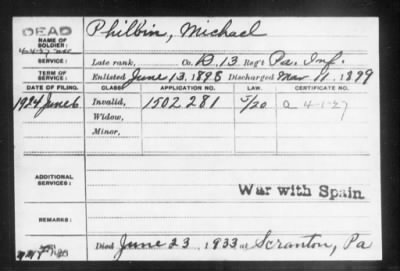 DEAD
Philbin, Michael
NAME OF SOLDIER:
SERVICE: Late rank, Co. D. 13 Reg't Pa. Inf.
TERM OF SERVICE: Enlisted June 13. 1898 Discharged Mar. 11. 1899
DATE OF FILING. CLASS. APPLICATION NO. LAW. CERTIFICATE NO.
1924 June 6 Invalid, 1502 281 5/20 a 4-1-27
Widow,
Minor,
ADDITIONAL SERVICES:
War with Spain.
REMARKS:
Died June 23, 1933 at Scranton, Pa